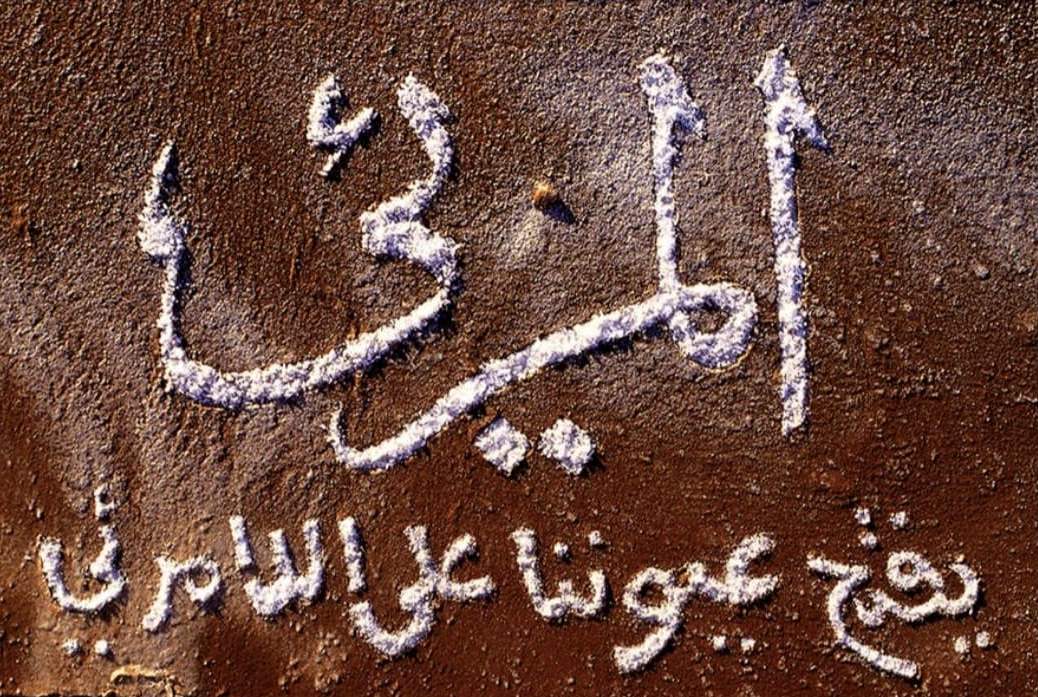 المرئي
يفتح عيوننا على اللامرئي